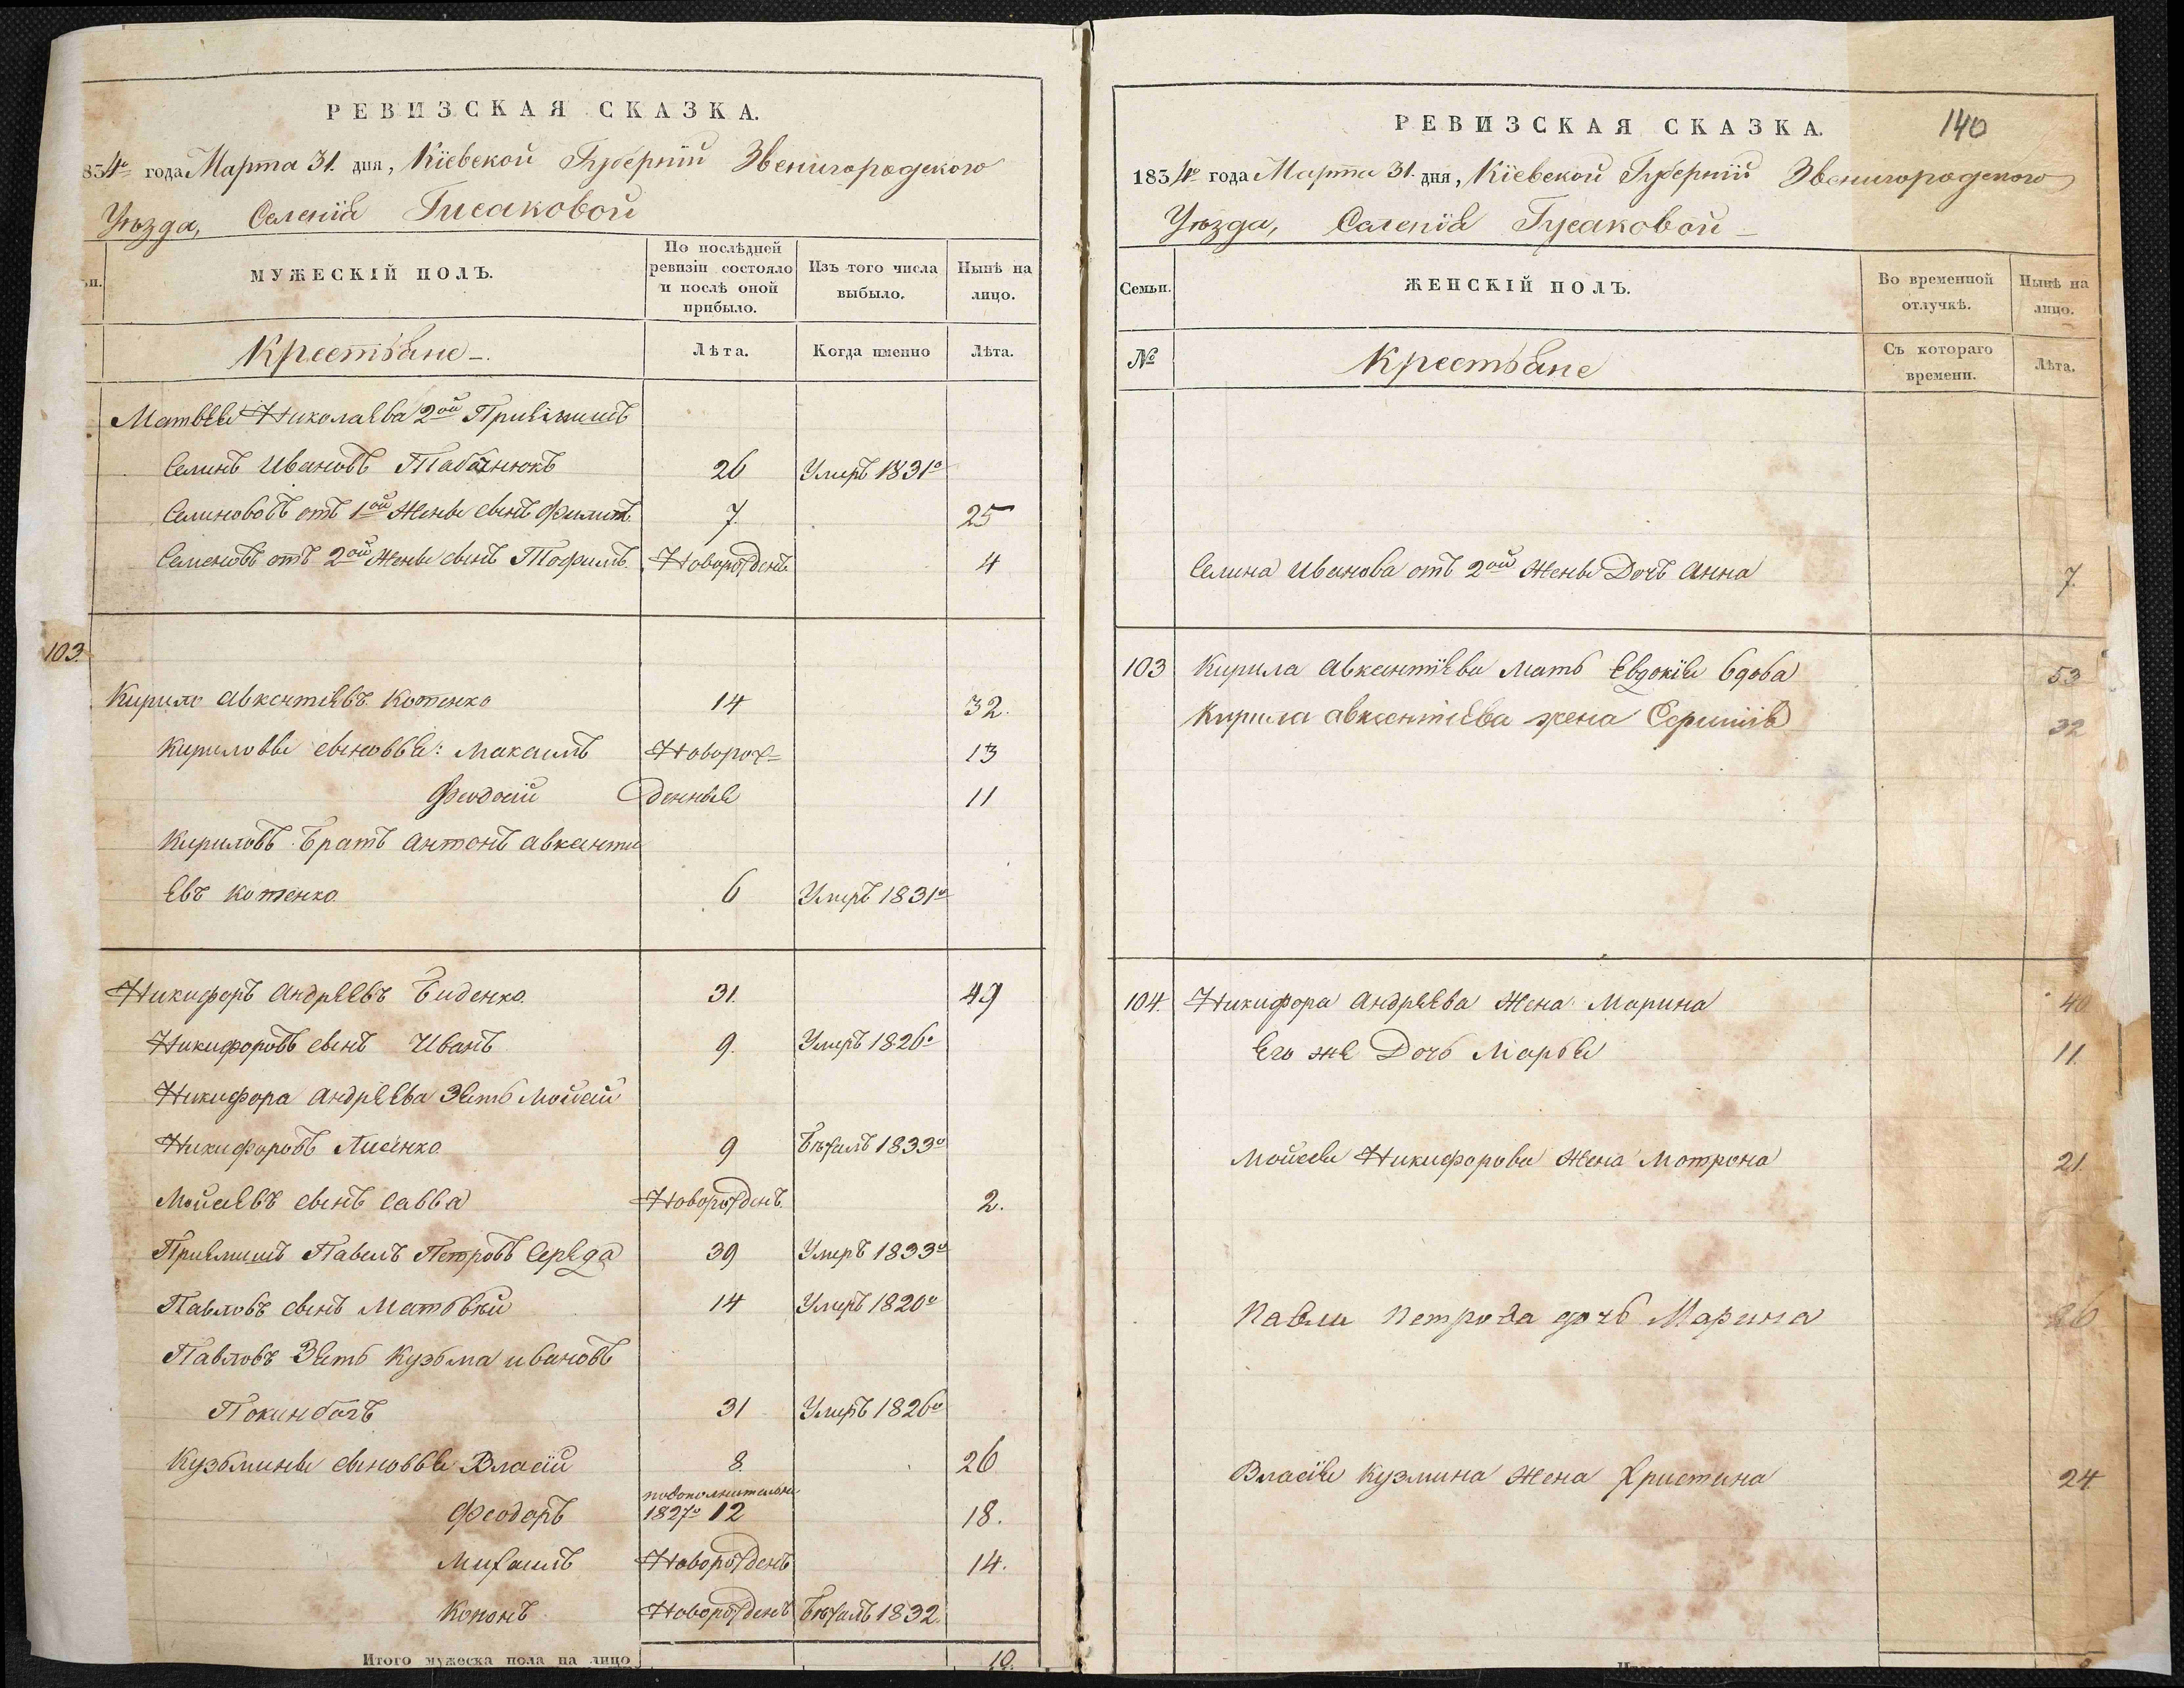 РЕВИЗСКАЯ СКАЗКА.
834го года Марта 31. дня, Кіевской Губерніи Звенигородского
Уѣзда, Селенія Гусаковой
МУЖЕСКІЙ ПОЛЪ.
По послѣдней ревизіи состояло и послѣ оной прибыло.
Изъ того числа выбыло.
Нынѣ на лицо.
Крестьяне
Лѣта.
Когда именно
Лѣта.
Матвея Николаева 2ой Приемишъ
Семенъ Ивановъ 26 Умеръ 1831о
отъ 1ой Жены сынъ Филипъ 7. 25
Семеновъ отъ 2ой Жены сынъ Новорожденъ 4
103.
Кирило Авксентіевъ Котенко 14 32.
Кириловы сыновья: Максимъ Новорож= 13
Феодосій денные 11
Кириловъ Братъ Антонъ Авксенти
евъ Котенко 6 Умеръ 1831о
Никифоръ Андреевъ Биденко. 31. 49
Никифоровъ сынъ Иванъ 9. Умеръ 1826о
Никифора Андреева Зять Мойсей
Никифоровъ Лисенко 9 Бѣжалъ 1833о
Мойсеевъ сынъ Савва Новорожденъ. 2.
Приемишъ Павелъ Петровъ Середа 39 Умеръ 1833о
Павловъ сынъ Матвѣй 14 Умеръ 1820о
Павловъ Зять Кузьма Ивановъ
31 Умеръ 1826о
Кузьмины сыновья Власій 8. 26
Феодоръ 1827о 12 18.
Михаилъ Новорожденъ 14.
Кононъ Новорожденъ Бѣжалъ 1832.
Итого мужеска пола на лицо 10.
140
РЕВИЗСКАЯ СКАЗКА.
1834го года Марта 31. дня, Кіевской Губерніи Звенигородского
Уѣзда, Селенія Гусаковой
Семьи.
ЖЕНСКІЙ ПОЛЪ.
Во временной отлучкѣ.
Нынѣ на лицо.
№
Крестьяне
Съ котораго времени.
Лѣта.
Семена Иванова отъ 2ой Жены Дочь Анна 7.
103 Кирила Авксентіева Мать Евдокія вдова 53
Кирила Авксентіева жена 32
104. Никифора Андреева Жена Марина 40
Его же Дочь Марья 11.
Мойсея Никифорова Жена Мотрона 21.
Павла Петрова дочь Марина
Власія Кузмина Жена Христина 24